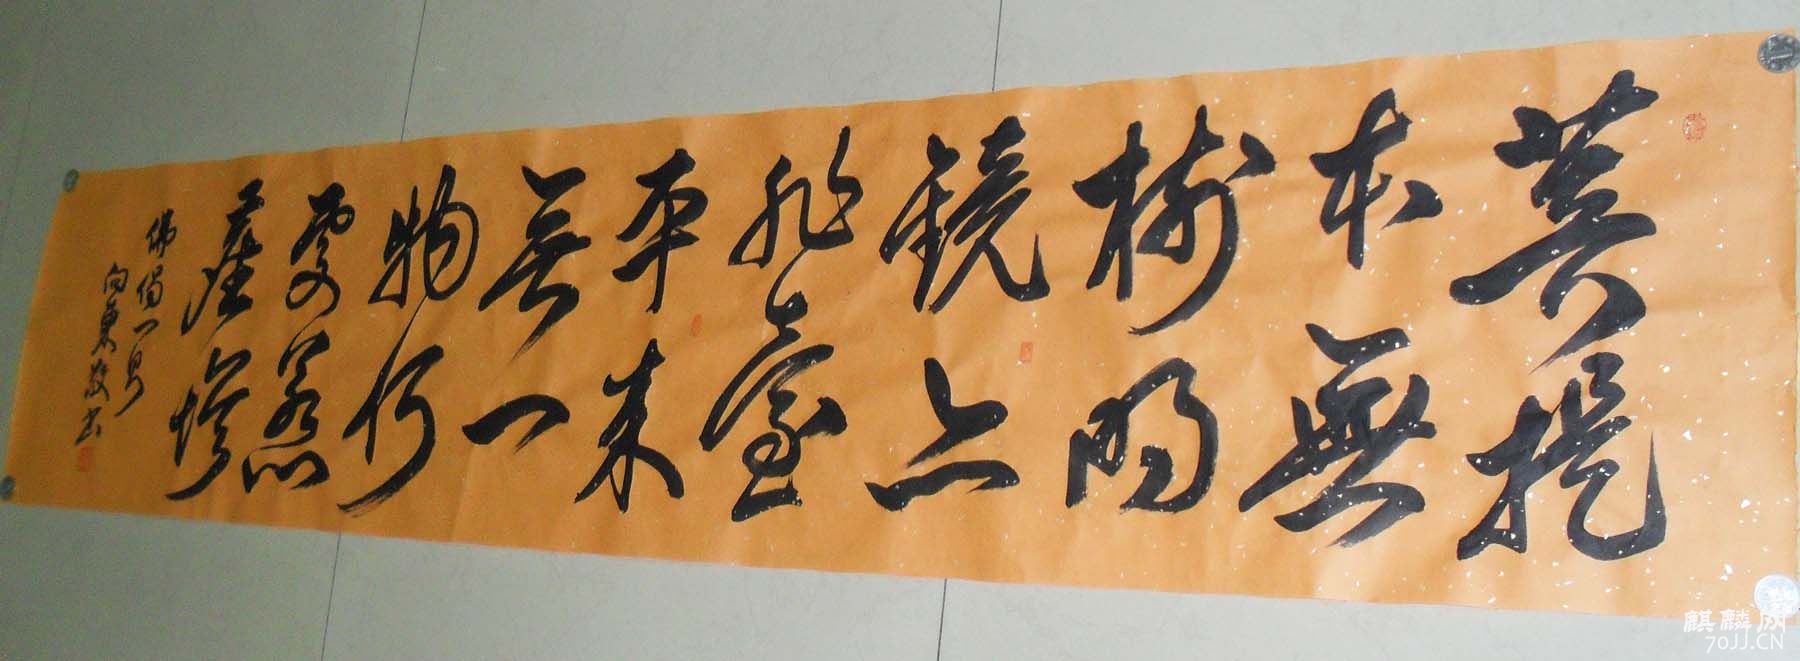 菩提
本無
樹明
鏡亦
非臺
本来
無一
物何
處惹
塵埃
佛偈一首
向東敬书
麒麟网
70JJ.CN